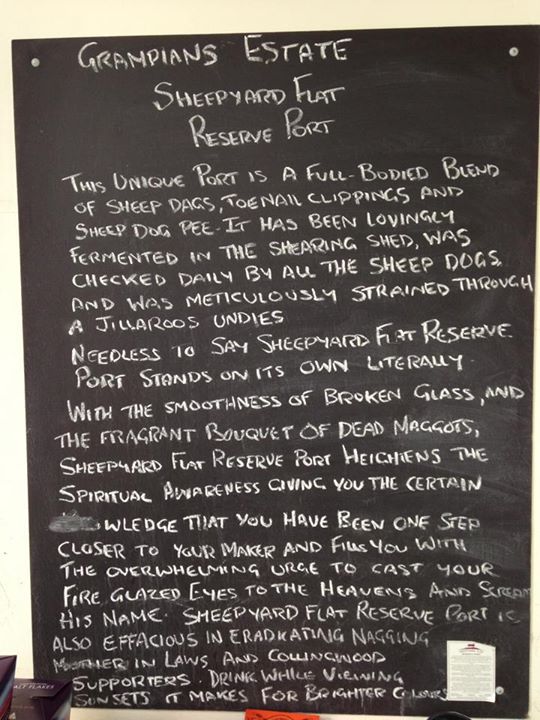 GRAMPIANS ESTATE
SHEEPYARD FLAT
RESERVE PORT
THIS UNIQUE PORT IS A FULL-BODIED BLEND
OF SHEEP DAGS, TOENAIL CLIPPINGS AND
SHEEP DOG PEE. IT HAS BEEN LOVINGLY
FERMENTED IN THE SHEARING SHED, WAS
CHECKED DAILY BY ALL THE SHEEP DOGS
AND WAS METICULOUSLY STRAINED THROUGH
A JILLAROOS UNDIES
NEEDLESS TO SAY SHEEPYARD FLAT RESERVE
PORT STANDS ON ITS OWN LITERALLY.
WITH THE SMOOTHNESS OF BROKEN GLASS, AND
THE FRAGRANT BOUQUET OF DEAD MAGGOTS,
SHEEPYARD FLAT RESERVE PORT HEIGHTENS THE
SPIRITUAL AWARENESS GIVING YOU THE CERTAIN
WLEDGE THAT YOU HAVE BEEN ONE STEP
CLOSER TO YOUR MAKER AND FILLS YOU WITH
THE OVERWHELMING URGE TO CAST YOUR
FIRE GLAZED EYES TO THE HEAVENS AND SCREAM
HIS NAME. SHEEPYARD FLAT RESERVE PORT IS
ALSO EFFACIOUS IN ERADIKATING NAGGING
MOTHER IN LAWS AND COLLINGWOOD
SUPPORTERS. DRINK WHILE VIEWING
SUNSETS IT MAKES FOR BRIGHTER COLOURS
ALT FLAKES